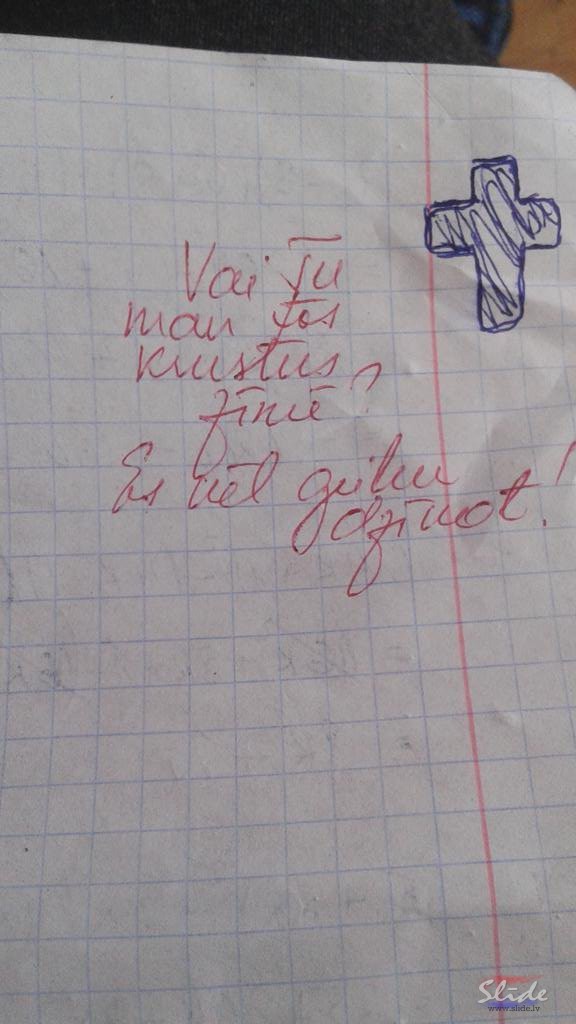 Vai Tu
man tos
krustus
zīmē?
Es vēl gribu
dzīvot!
Slide
www.slide.lv